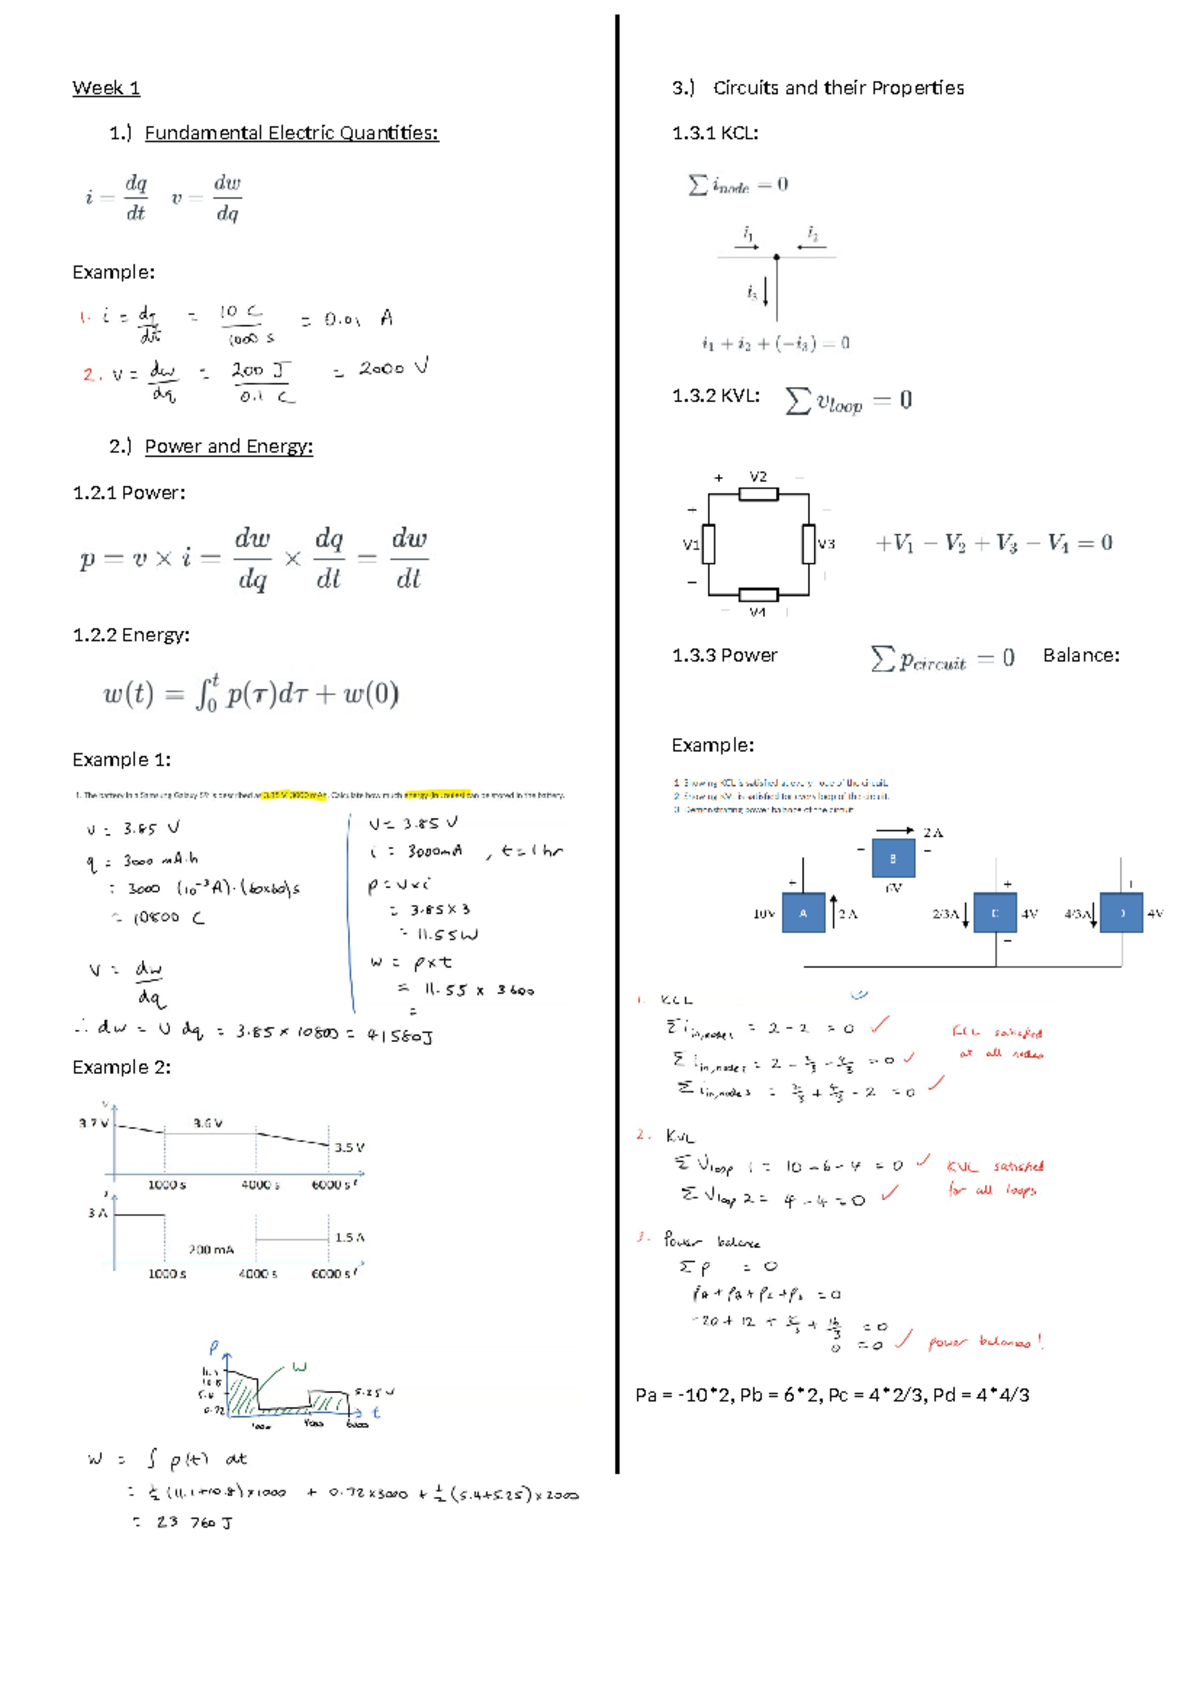 Week 1
1.) Fundamental Electric Quantities:
i = dq/dt   v = dw/dq
Example:
1. i = dq/dt = 10 C/1000 s = 0.01 A
2. v = dw/dq = 200 J/0.1 C = 2000 V
2.) Power and Energy:
1.2.1 Power:
p = v × i = dw/dq × dq/dt = dw/dt
1.2.2 Energy:
w(t) = ∫₀ᵗ p(τ)dτ + w(0)
Example 1:
1. The battery in a Samsung Galaxy S9 is described as 3.85 V 3000 mAh. Calculate how much energy (in joules) can be stored in the battery.
v = 3.85 V
q = 3000 mA.h
= 3000 (10⁻³A)·(60×60)s
= 10800 C
v = dw/dq
∴ dw = v dq = 3.85 × 10800 = 41580J
v = 3.85 V
i = 3000mA , t = 1hr
p = v×i
= 3.85 × 3
= 11.55W
w = p×t
= 11.55 × 3600
=
Example 2:
v
3.7 V
3.6 V
3.5 V
1000 s 4000 s 6000 s t
3 A
200 mA
1.5 A
1000 s 4000 s 6000 s t
P
W
11.1
10.8
5.4
0.72
5.25
t
1000 4000 6000
W = ∫ p(t) dt
= ½(11.1+10.8)×1000 + 0.72×3000 + ½(5.4+5.25)×2000
= 23 760 J
3.) Circuits and their Properties
1.3.1 KCL:
∑ i_node = 0
i₁ i₂
i₃
i₁ + i₂ + (−i₃) = 0
1.3.2 KVL: ∑ v_loop = 0
+ V2 −
+ −
V1 V3
− +
− V4 +
+V₁ − V₂ + V₃ − V₄ = 0
1.3.3 Power ∑ p_circuit = 0 Balance:
Example:
1. Showing KCL is satisfied at every node of the circuit.
2. Showing KVL is satisfied for every loop of the circuit.
3. Demonstrating power balance of the circuit
2 A
− B −
6V
+ + +
10V A 2 A 2/3A C 4V 4/3A D 4V
−
1. KCL
∑ i_in,node1 = 2 − 2 = 0 ✓
∑ i_in,node2 = 2 − 2/3 − 4/3 = 0 ✓
∑ i_in,node3 = 2/3 + 4/3 − 2 = 0 ✓
KCL satisfied
at all nodes
2. KVL
∑ V_loop 1 = 10 − 6 − 4 = 0 ✓
∑ V_loop 2 = 4 − 4 = 0 ✓
KVL satisfied
for all loops
3. Power balance
∑ p = 0
pA + pB + pC + pD = 0
−20 + 12 + 8/3 + 16/3 = 0
0 = 0 ✓ power balances!
Pa = -10*2, Pb = 6*2, Pc = 4*2/3, Pd = 4*4/3